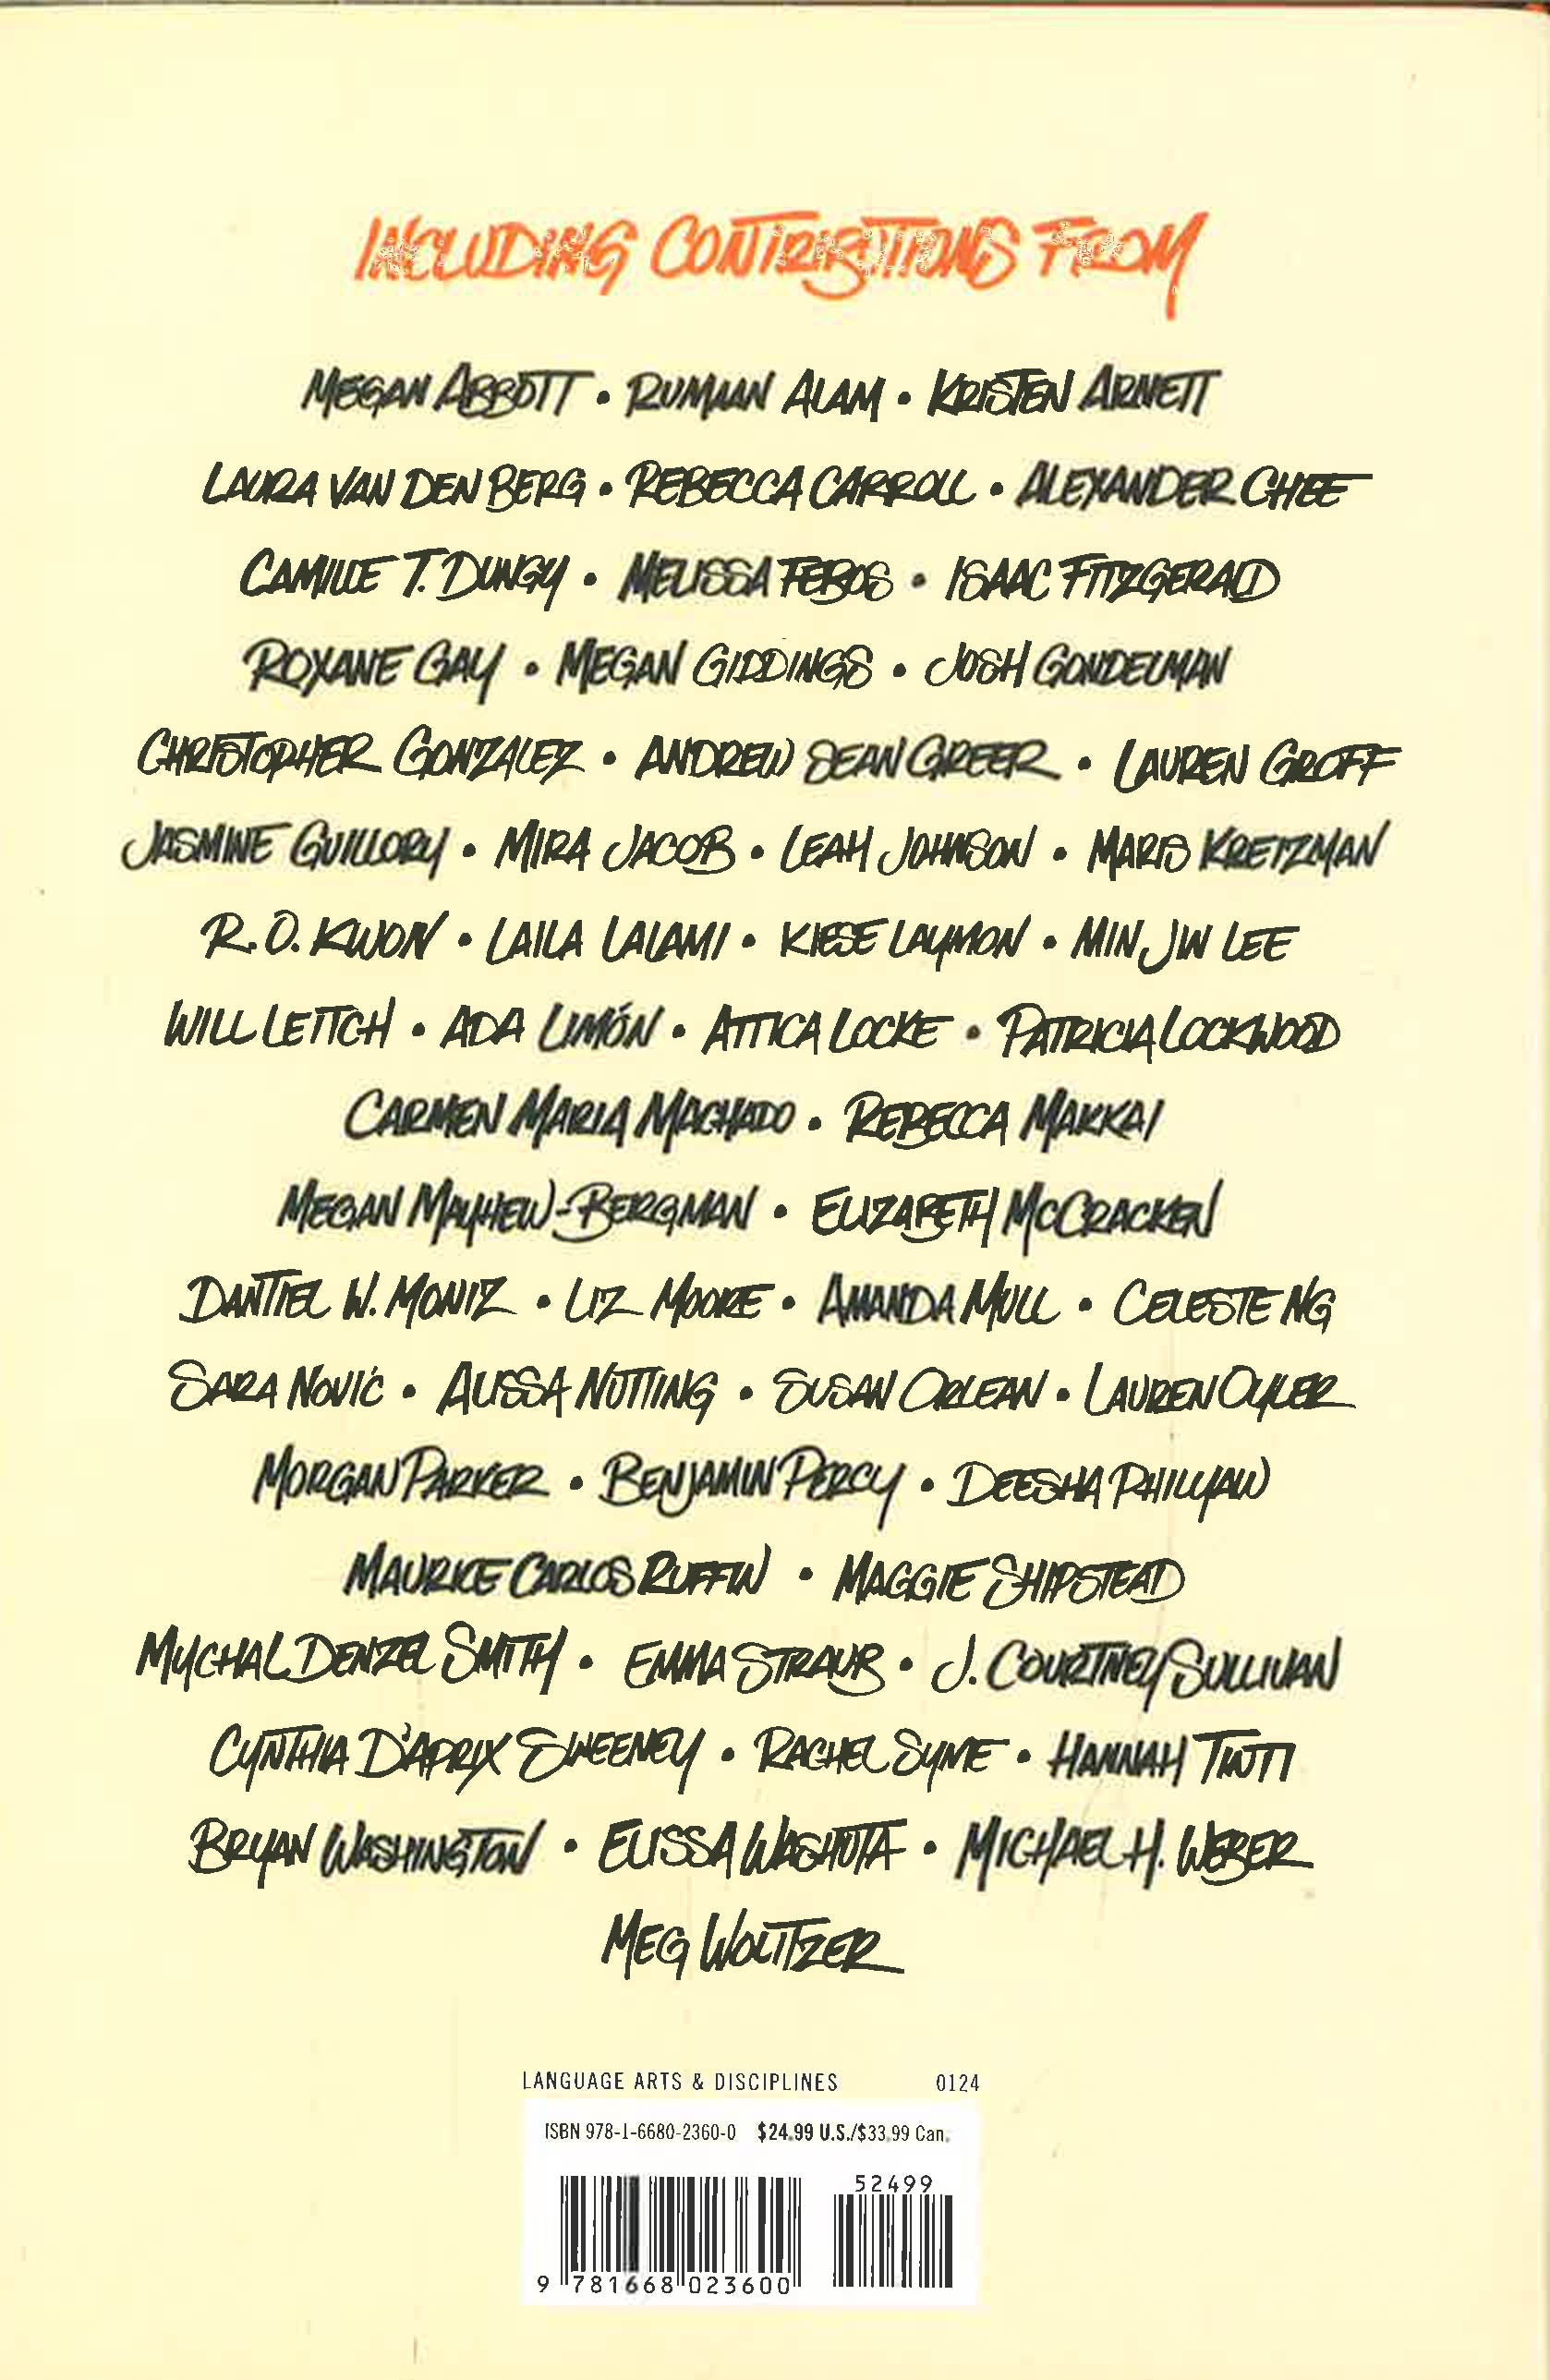 INCLUDING CONTRIBUTIONS FROM
MEGAN ABBOTT • RUMAAN ALAM • KRISTEN ARNETT
LAURA VAN DEN BERG • REBECCA CARROLL • ALEXANDER CHEE
CAMILLE T. DUNGY • MELISSA FEBOS • ISAAC FITZGERALD
ROXANE GAY • MEGAN GIDDINGS • JOSH GONDELMAN
CHRISTOPHER GONZALEZ • ANDREW SEAN GREER • LAUREN GROFF
JASMINE GUILLORY • MIRA JACOB • LEAH JOHNSON • MARIS KREIZMAN
R. O. KWON • LAILA LALAMI • KIESE LAYMON • MIN JIN LEE
WILL LEITCH • ADA LIMÓN • ATTICA LOCKE • PATRICIA LOCKWOOD
CARMEN MARIA MACHADO • REBECCA MAKKAI
MEGAN MAYHEW-BERGMAN • ELIZABETH MCCRACKEN
DANTIEL W. MONIZ • LIZ MOORE • AMANDA MULL • CELESTE NG
SARA NOVIĆ • ALISSA NUTTING • SUSAN ORLEAN • LAUREN OYLER
MORGAN PARKER • BENJAMIN PERCY • DEESHA PHILYAW
MAURICE CARLOS RUFFIN • MAGGIE SHIPSTEAD
MYCHAL DENZEL SMITH • EMMA STRAUB • J. COURTNEY SULLIVAN
CYNTHIA D'APRIX SWEENEY • RACHEL SYME • HANNAH TINTI
BRYAN WASHINGTON • ELISSA WASHUTA • MICHAEL H. WEBER
MEG WOLITZER
LANGUAGE ARTS & DISCIPLINES 0124
ISBN 978-1-6680-2360-0 $24.99 U.S./$33.99 Can.
52499
9 781668 023600